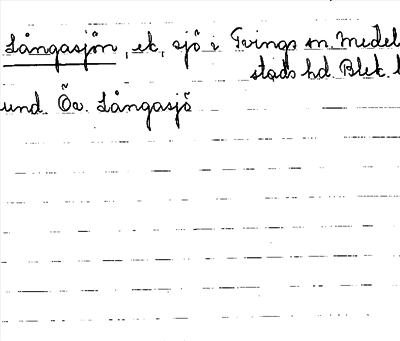 Långasjön, ek, sjö i Tvings sn. Medel
stads hd. Blek. l
und. Öv. Långasjö